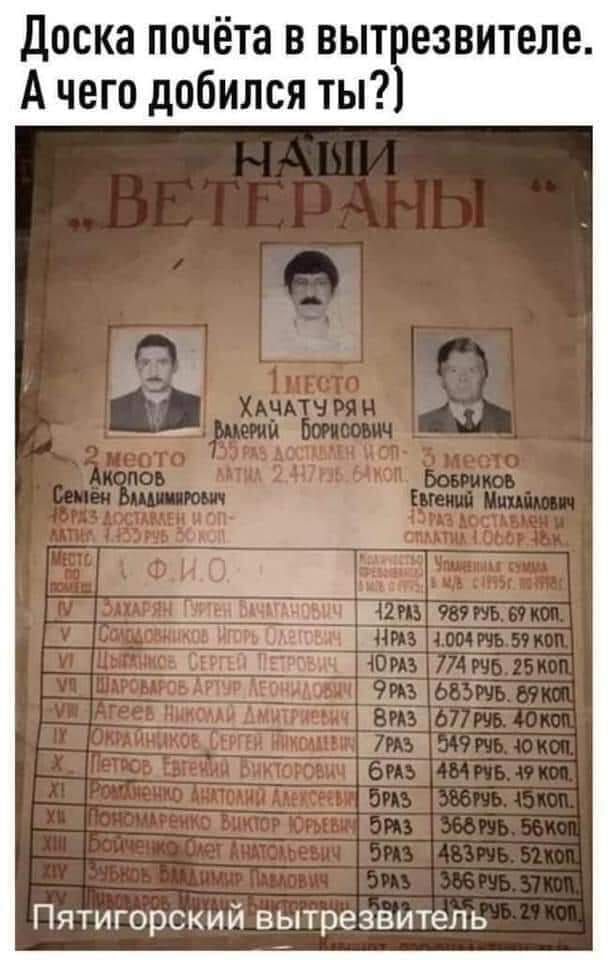 Доска почёта в вытрезвителе.
А чего добился ты?)
НАШИ
„ВЕТЕРАНЫ“
1 МЕСТО
ХАЧАТУРЯН
ВАЛЕРИЙ БОРИСОВИЧ
РАЗ ДОСТАВЛЕН И ОП-
ЛАТИЛ 2.417 РУБ. 64 КОП.
2 МЕСТО
АКОПОВ
СЕМЁН ВЛАДИМИРОВИЧ
РАЗ ДОСТАВЛЕН И ОП-
ЛАТИЛ РУБ КОП
3 МЕСТО
БОБРИКОВ
ЕВГЕНИЙ МИХАЙЛОВИЧ
РАЗ ДОСТАВЛЕН И
ОПЛАТИЛ К.
МЕСТО ПО ПОМЕЩ. Ф.И.О. КОЛИЧЕСТВО УПЛАЧЕННАЯ СУММА В М/В С 1995г.
IV ЗАХАРЯН ГУРГЕН 12 РАЗ 989 РУБ. 69 КОП.
V СОЛДОВНИКОВ ИГОРЬ ОЛЕГОВИЧ 11 РАЗ 1.004 РУБ. 59 КОП.
VI ЦЫГАНКОВ СЕРГЕЙ ПЕТРОВИЧ 10 РАЗ 774 РУБ. 25 КОП.
VII ШАРОВАРОВ АРТУР ЛЕОНИДОВИЧ 9 РАЗ 683 РУБ. 89 КОП.
VIII АГЕЕВ НИКОЛАЙ ДМИТРИЕВИЧ 8 РАЗ 677 РУБ. 40 КОП.
IX ОКРАЙНИКОВ СЕРГЕЙ НИКОЛАЕВИЧ 7 РАЗ 549 РУБ. 10 КОП.
X. ПЕТРОВ ЕВГЕНИЙ ВИКТОРОВИЧ 6 РАЗ 484 РУБ. 19 КОП.
XI РОМАНЕНКО АНАТОЛИЙ АЛЕКСЕЕВИЧ 5 РАЗ 386 РУБ. 15 КОП.
XII ПОНОМАРЕНКО ВИКТОР ЮРЬЕВИЧ 5 РАЗ 368 РУБ. 56 КОП
XIII БОЙЧЕНКО ОЛЕГ АНАТОЛЬЕВИЧ 5 РАЗ 483 РУБ. 52 КОП.
XIV ЗУБКОВ ВЛАДИМИР ПАВЛОВИЧ 5 РАЗ 386 РУБ. 37 КОП.
XV ПИВОВАРОВ МИХАИЛ ВИКТОРОВИЧ 5 РАЗ РУБ. 29 КОП.
Пятигорский вытрезвитель